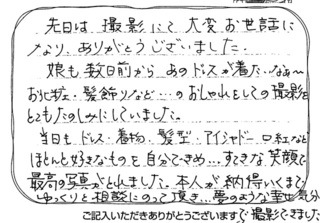 先日は 撮影にて 大変お世話に
なり、ありがとうございました。
娘も数日前から あのドレスが着たいなぁ〜
お化粧、髪飾りなど…のおしゃれをしての撮影を
とてもたのしみにしていました。
当日も ドレス・着物・髪型・アイシャドー・口紅など
ほとんど好きなものを自分できめ…すてきな笑顔で
最高の写真がとれました。本人が納得いくまで
ゆっくりと相談にのって頂き…夢のような幸せ気分
で撮影できました。
ご記入いただきありがとうございます